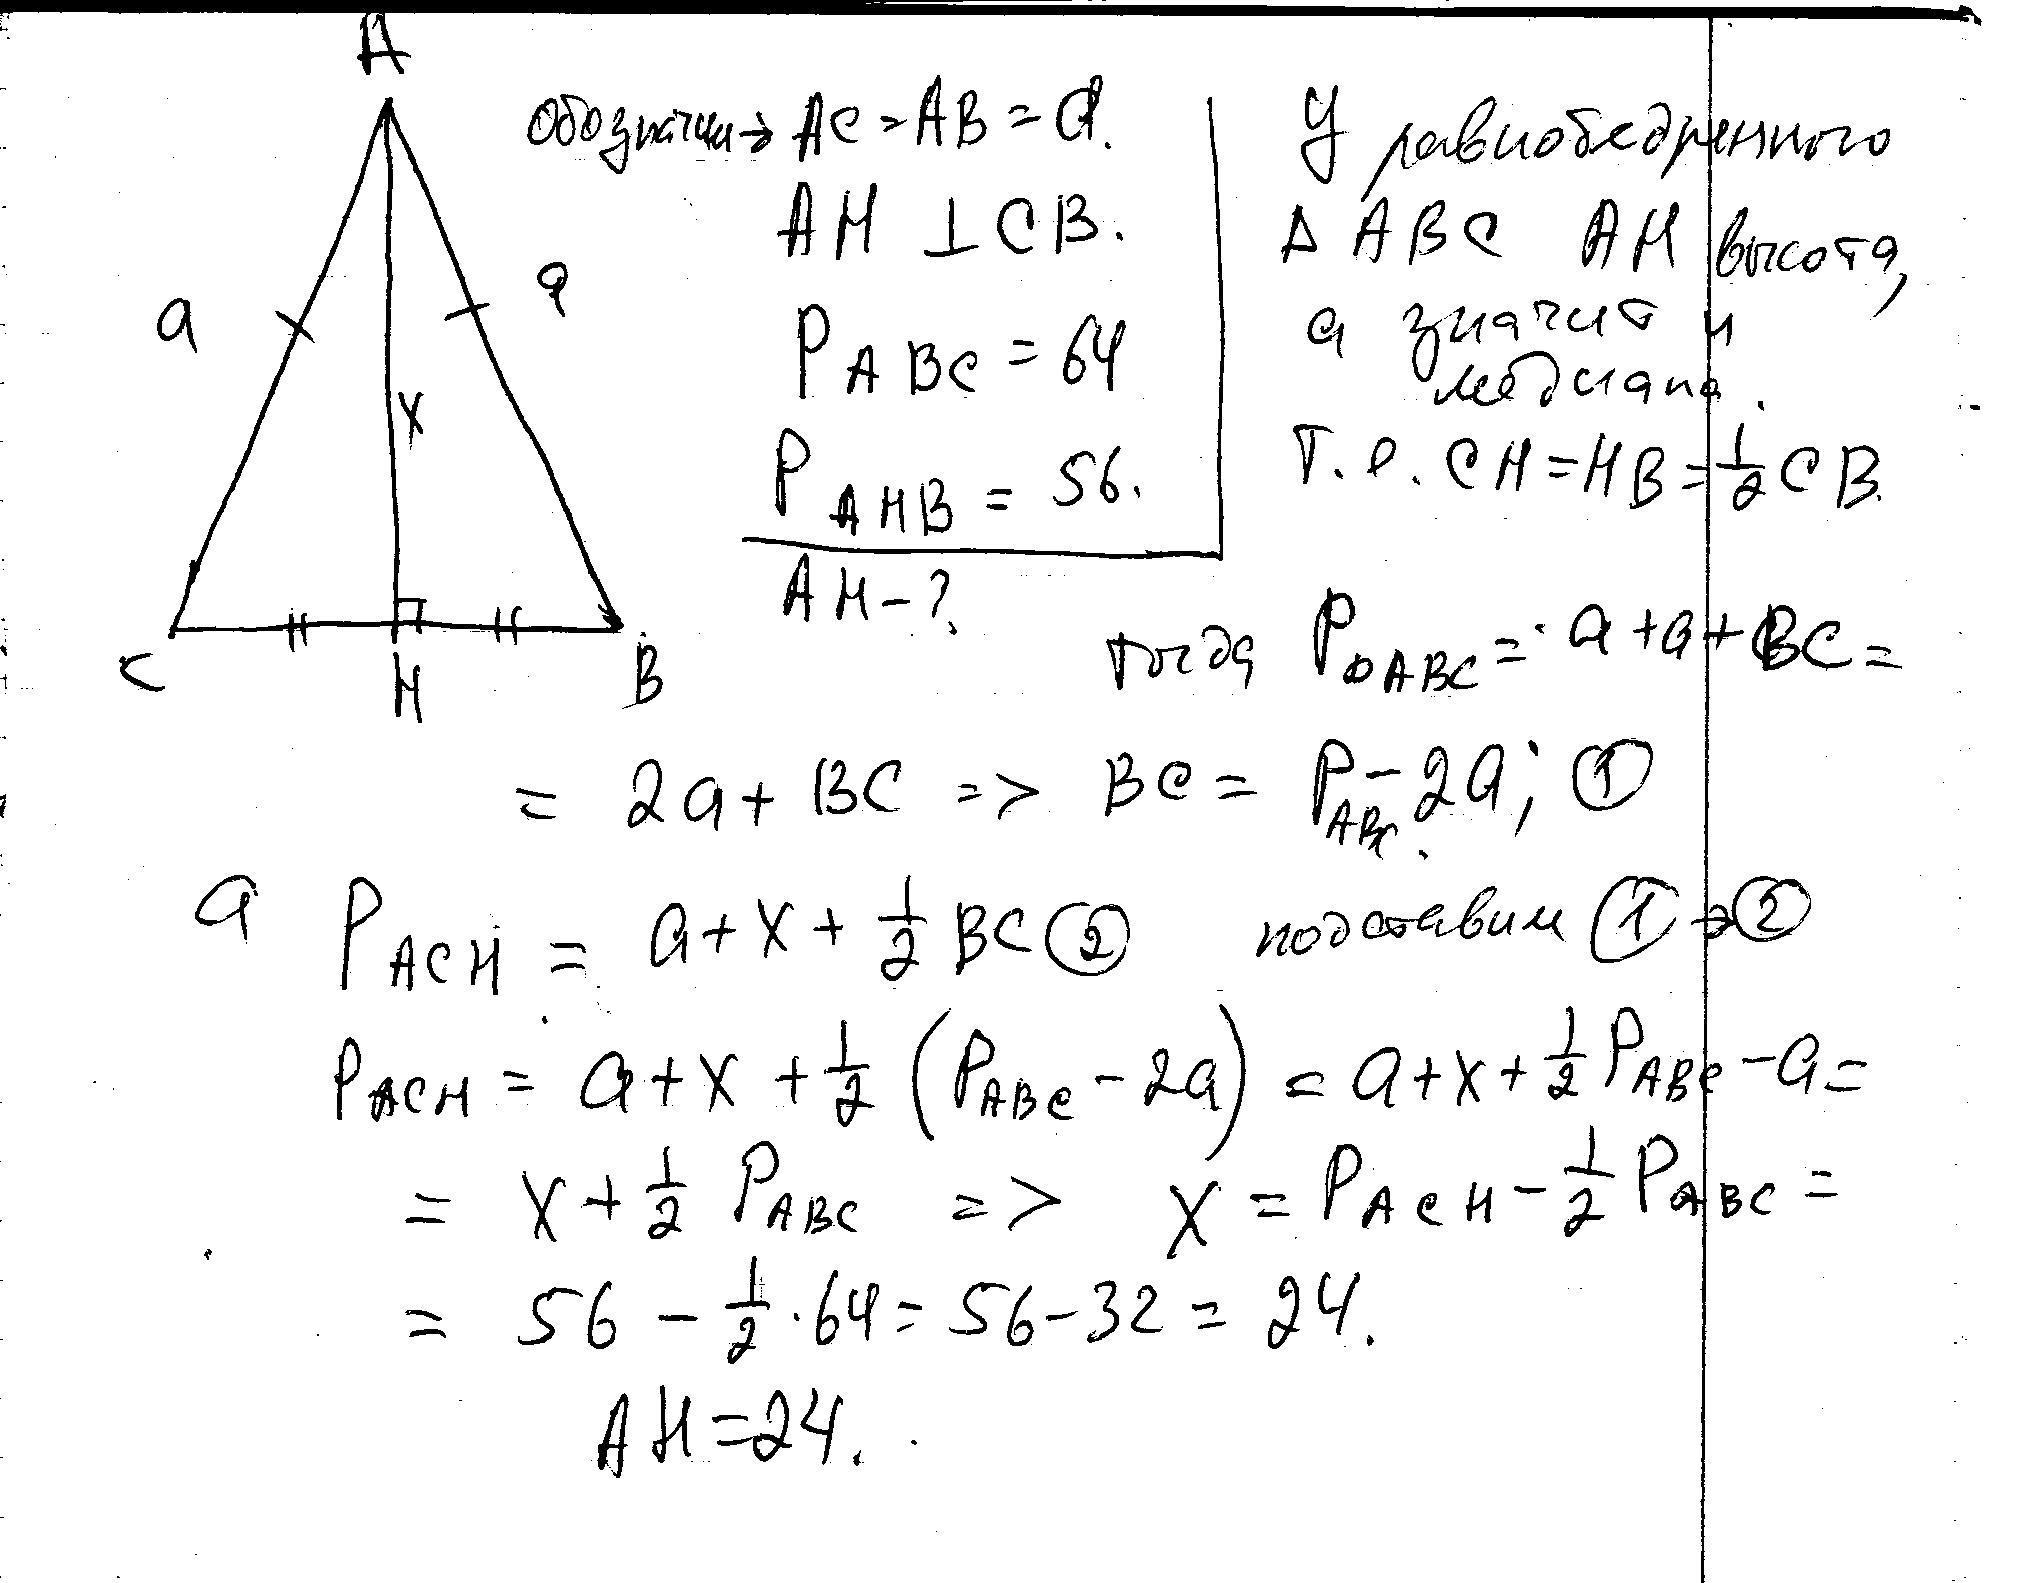 A
Обозначим → AC = AB = a.
AH ⊥ CB.
P ABC = 64
P AHB = 56.
AH - ?
У равнобедренного
Δ ABC AH высота,
а значит и
медиана.
т.е. CH = HB = 1/2 CB.
a
a
x
C
H
B
тогда P ΔABC = a + a + BC =
= 2a + BC => BC = P ABC - 2a; ①
а P ACH = a + x + 1/2 BC ② подставим ① → ②
P ACH = a + x + 1/2 (P ABC - 2a) = a + x + 1/2 P ABC - a =
= x + 1/2 P ABC => x = P ACH - 1/2 P ABC =
= 56 - 1/2 · 64 = 56 - 32 = 24.
AH = 24.